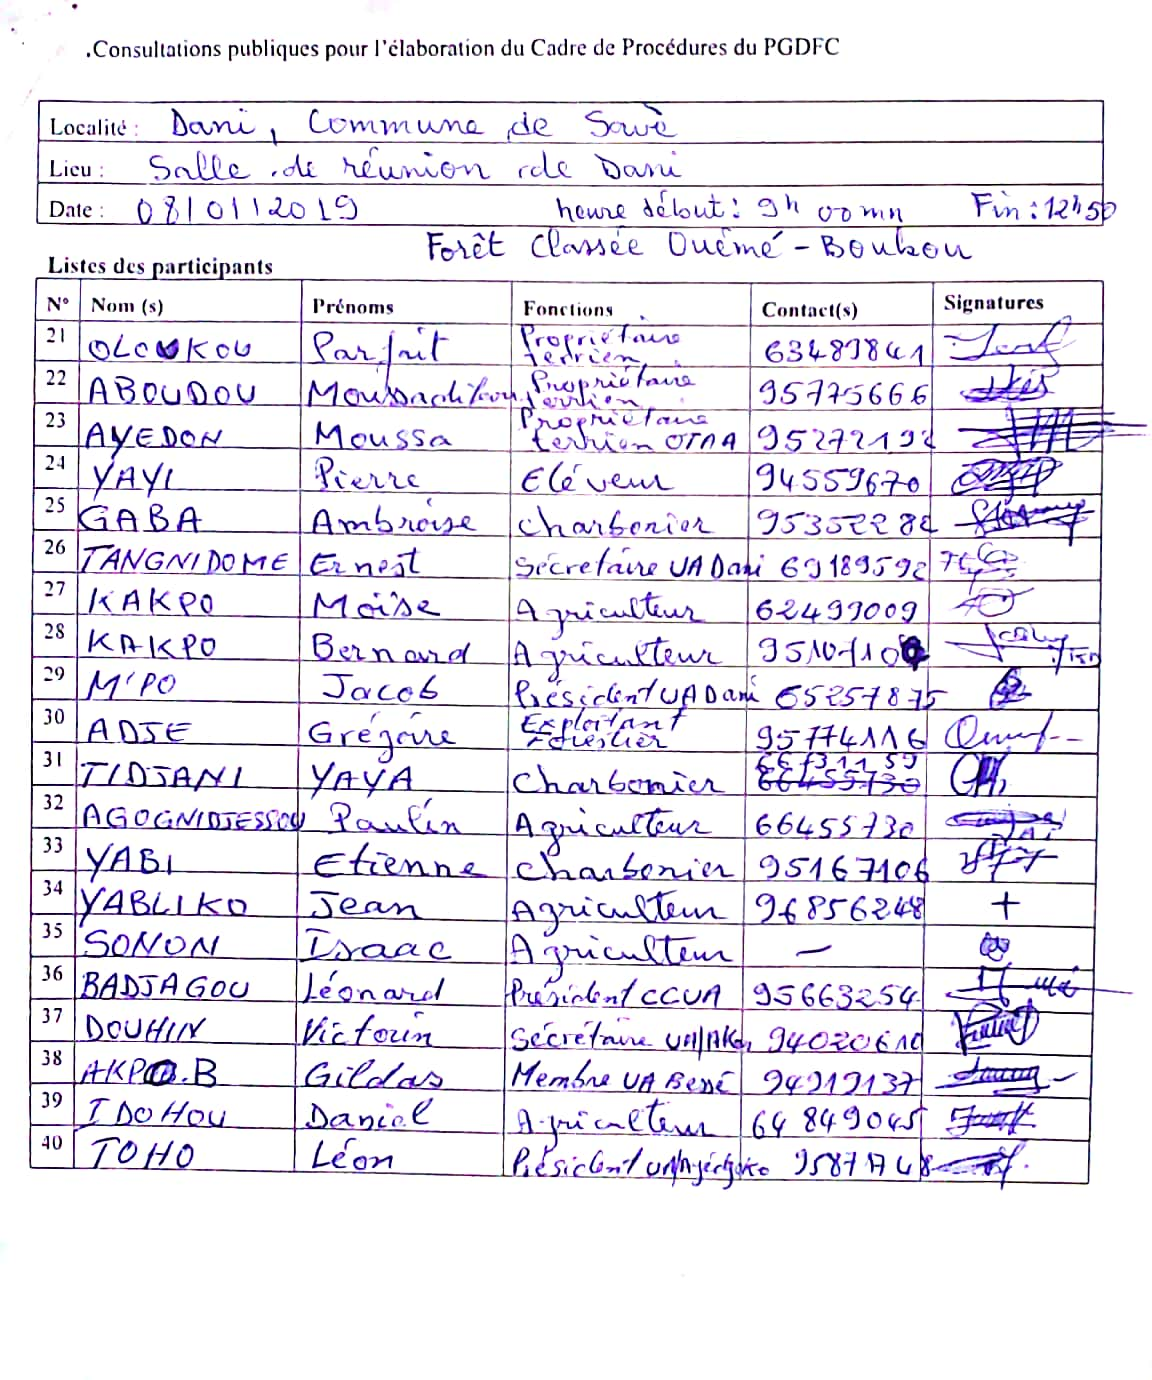 .Consultations publiques pour l'élaboration du Cadre de Procédures du PGDFC
Localité : Dani, Commune de Savè
Lieu : Salle de réunion de Dani
Date : 08/01/2019 heure début : 9h 00mn Fin : 12h50
Forêt Classée Ouémé-Boukou
Listes des participants
N° Nom (s) Prénoms Fonctions Contact(s) Signatures
21 OLOUKOU Parfait Propriétaire terrien 63489841
22 ABOUDOU Propriétaire terrien 95775666
23 AYEDON Moussa Propriétaire terrien 95272192
24 YAYI Pierre Eléveur 94559670
25 GABA Ambroise charbonier 95352282
26 TANGNIDOME Ernest Sécrétaire UA Dani 69189592
27 KAKPO Moïse Agriculteur 62499009
28 KAKPO Bernard Agriculteur
29 M'PO Jacob Président UA Dani 65257875
30 ADJE Grégoire Exploitant Forestier 95774116
31 TIDJANI YAYA Charbonier 66731159 66455730
32 AGOGNIDJESSOU Paulin Agriculteur 66455730
33 YABI Etienne charbonier 95167106
34 YABLIKO Jean Agriculteur 96856248 +
35 SONON Isaac Agriculteur —
36 BADJAGOU Léonard Président CCUA 95663254
37 DOUHIN Victorin Sécrétaire 94020610
38 AKPO.B Gildas Membre UA Bessé 94919137
39 IDOHOU Daniel Agriculteur 64849045
40 TOHO Léon Président 95871748